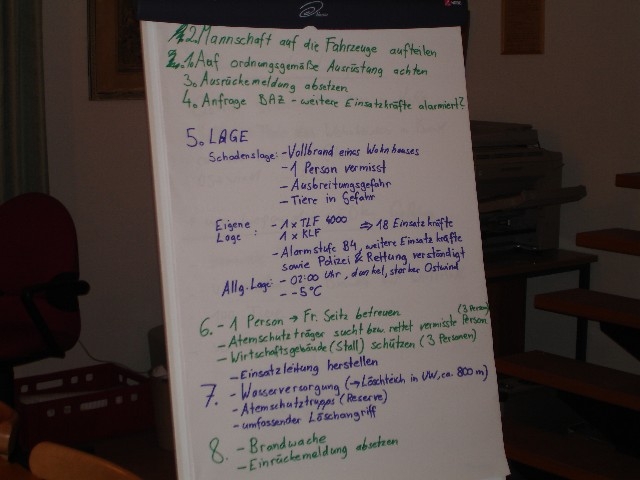 2. Mannschaft auf die Fahrzeuge aufteilen
1. Auf ordnungsgemäße Ausrüstung achten
3. Ausrückemeldung absetzen
4. Anfrage BAZ - weitere Einsatzkräfte alarmiert?
5. LAGE
Schadenslage: - Vollbrand eines Wohnhauses
- 1 Person vermisst
- Ausbreitungsgefahr
- Tiere in Gefahr
Eigene Lage: - 1x TLF 4000 ⇒ 18 Einsatzkräfte
1x KLF
- Alarmstufe B4, weitere Einsatzkräfte
sowie Polizei & Rettung verständigt
Allg. Lage: - 02:00 Uhr, dunkel, starker Ostwind
- -5°C
6. - 1 Person → Fr. Seitz betreuen
- Atemschutzträger sucht bzw. rettet vermisste Person (3 Person)
- Wirtschaftsgebäude (Stall) schützen (3 Personen)
- Einsatzleitung herstellen
7. - Wasserversorgung (→ Löschteich in UW, ca. 800 m)
- Atemschutztrupps (Reserve)
- umfassender Löschangriff
8. - Brandwache
- Einrückemeldung absetzen